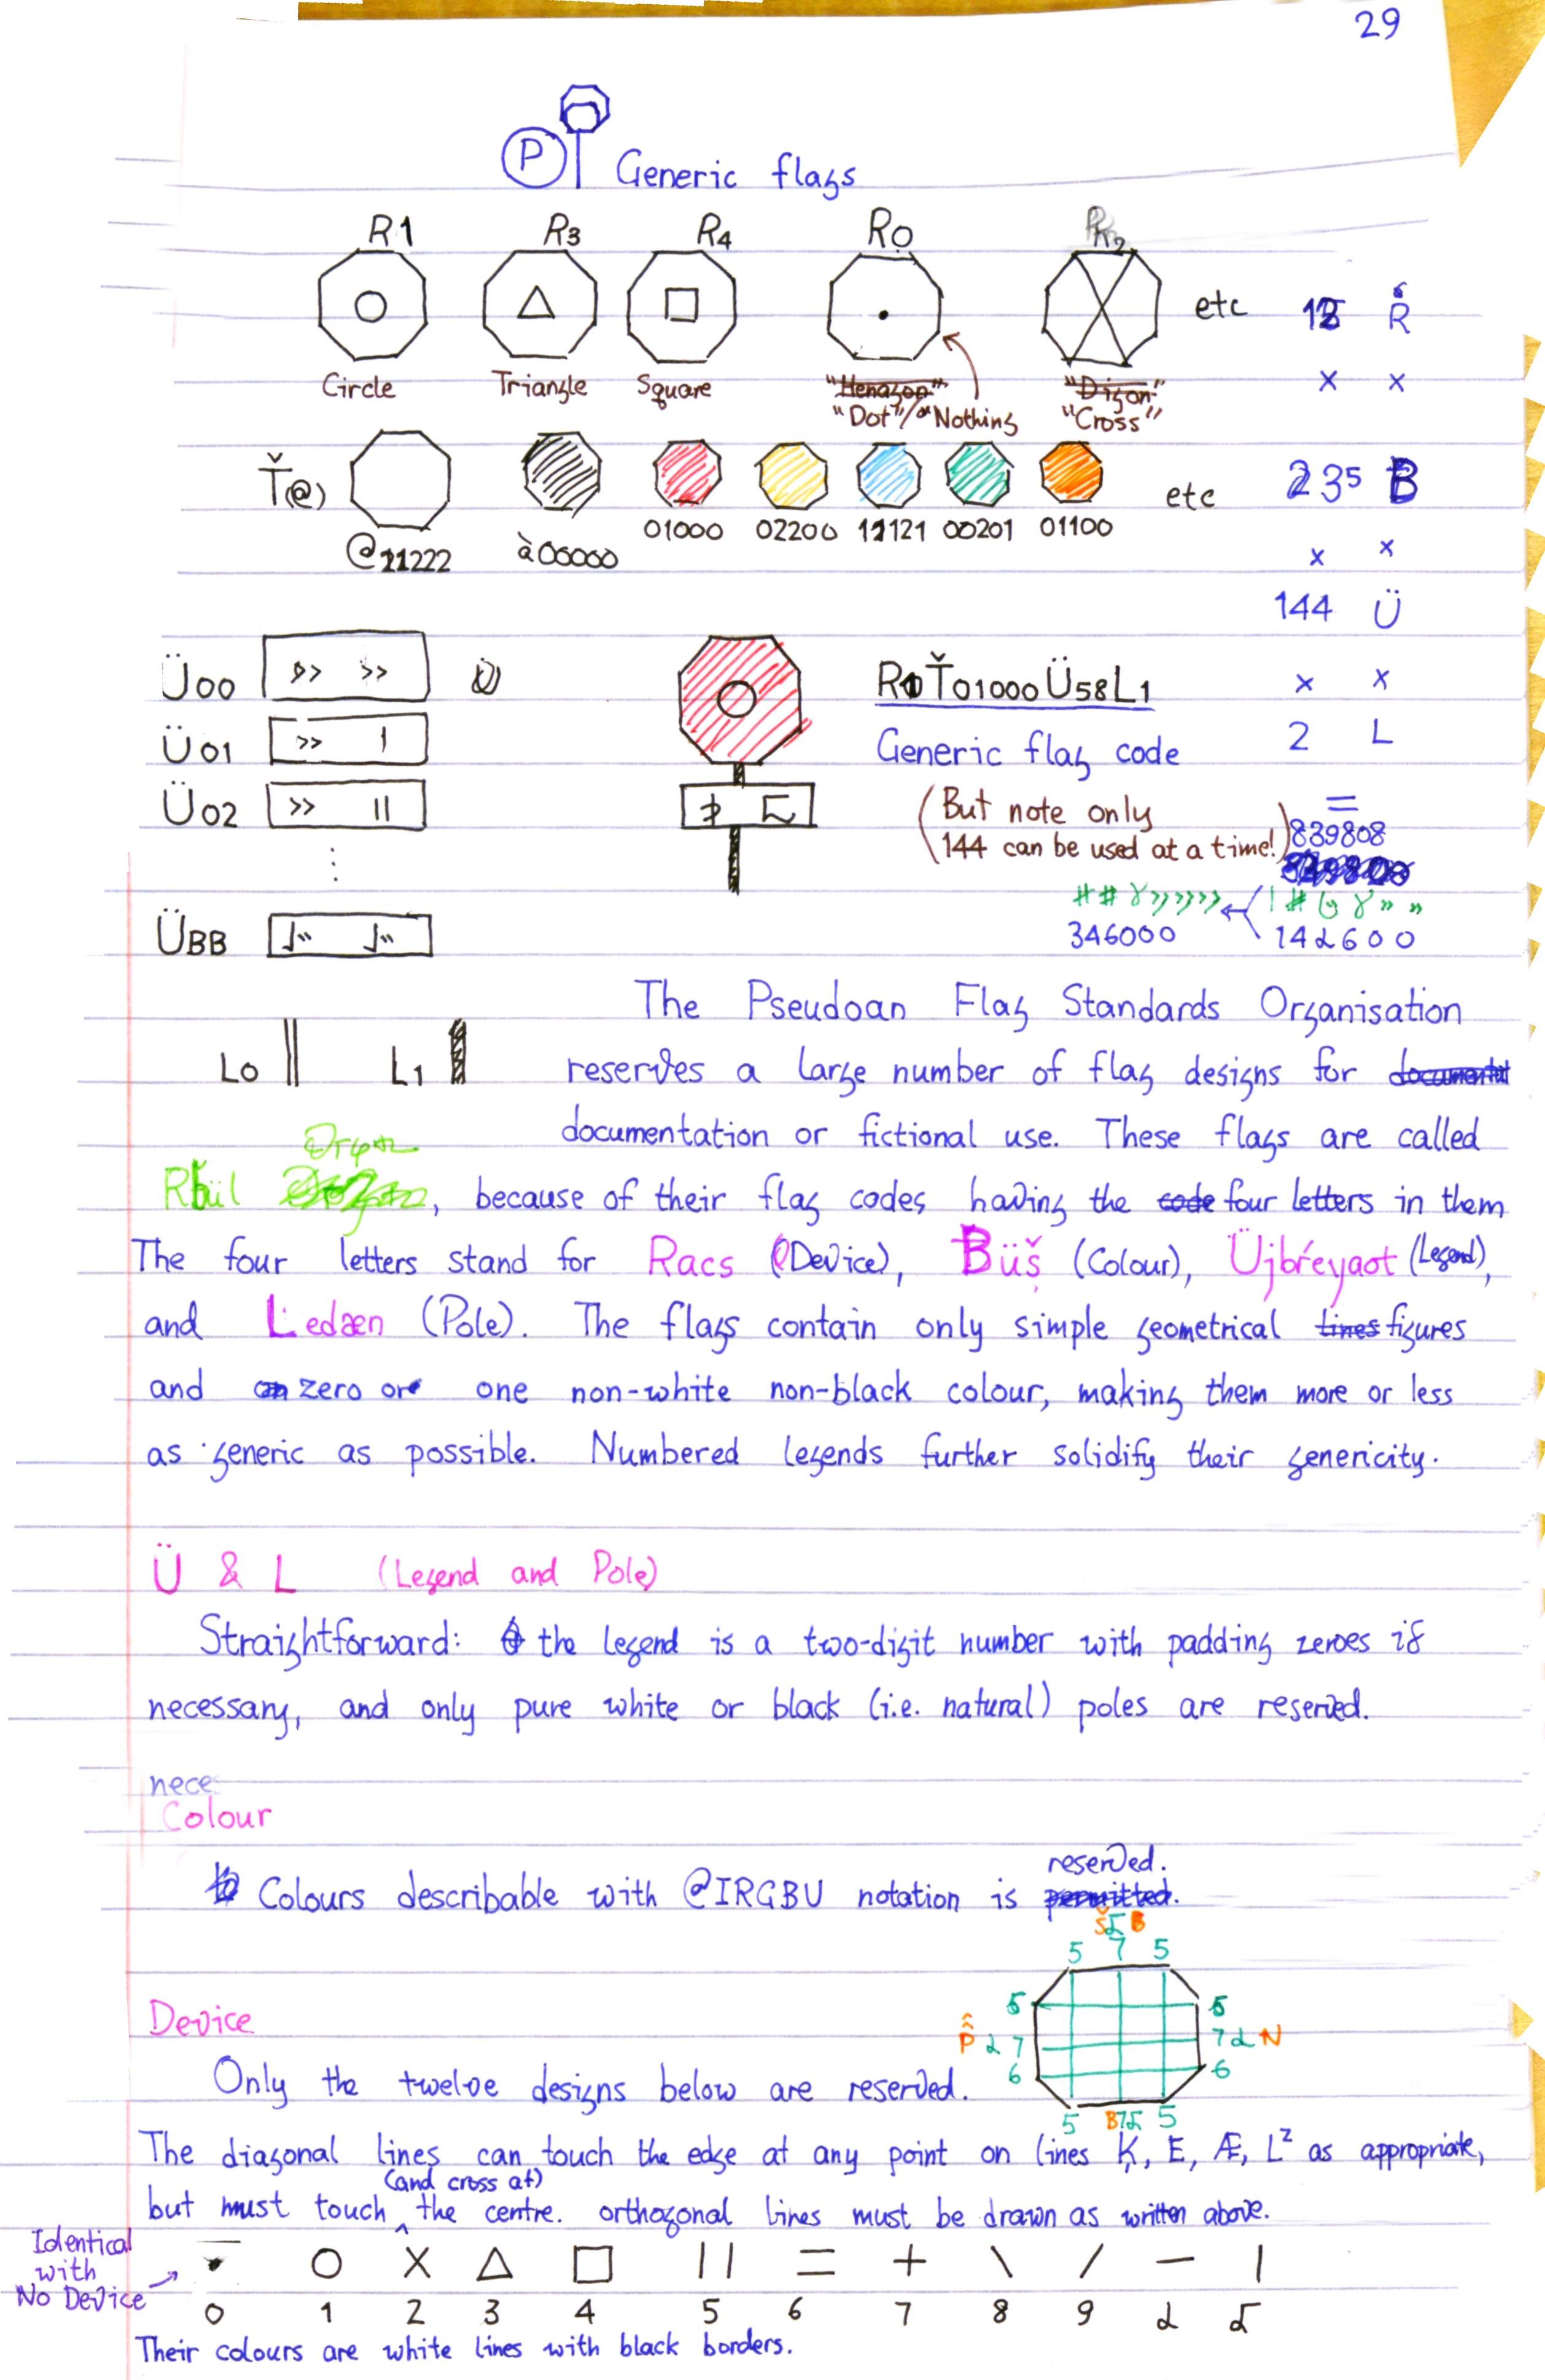 29
P Generic flags
R1 R3 R4 R0 R2
etc 12 Ŕ
Circle Triangle Square "Henagon" "Digon"
"Dot"/"Nothing "Cross"
x x
Ť(@) etc 235 B
@11222 à00000 01000 02200 11121 00201 01100
x x
144 Ü
Ü00 >> >> R1Ť01000Ü58L1 x x
Ü01 >> | Generic flag code 2 L
Ü02 >> || (But note only =
144 can be used at a time!) 839808
346000 142600
ÜBB
The Pseudoan Flag Standards Organisation
L0 L1 reserves a large number of flag designs for
documentation or fictional use. These flags are called
Rbül, because of their flag codes having the code four letters in them
The four letters stand for Racs (Device), Büš (Colour), Üjbŕeyaot (Legend),
and Ledæn (Pole). The flags contain only simple geometrical lines figures
and zero or one non-white non-black colour, making them more or less
as generic as possible. Numbered legends further solidify their genericity.
Ü & L (Legend and Pole)
Straightforward: the legend is a two-digit number with padding zeroes if
necessary, and only pure white or black (i.e. natural) poles are reserved.
nece
Colour
reserved.
Colours describable with @IRGBU notation is permitted.
Š B
5 7 5
5 5
P̂ 7 7 N
6 6
5 B 7 5
Device
Only the twelve designs below are reserved.
The diagonal lines can touch the edge at any point on lines Ķ, E, Æ, L² as appropriate,
(and cross at)
but must touch the centre. orthogonal lines must be drawn as written above.
Identical
with
No Device
0 1 2 3 4 5 6 7 8 9
Their colours are white lines with black borders.